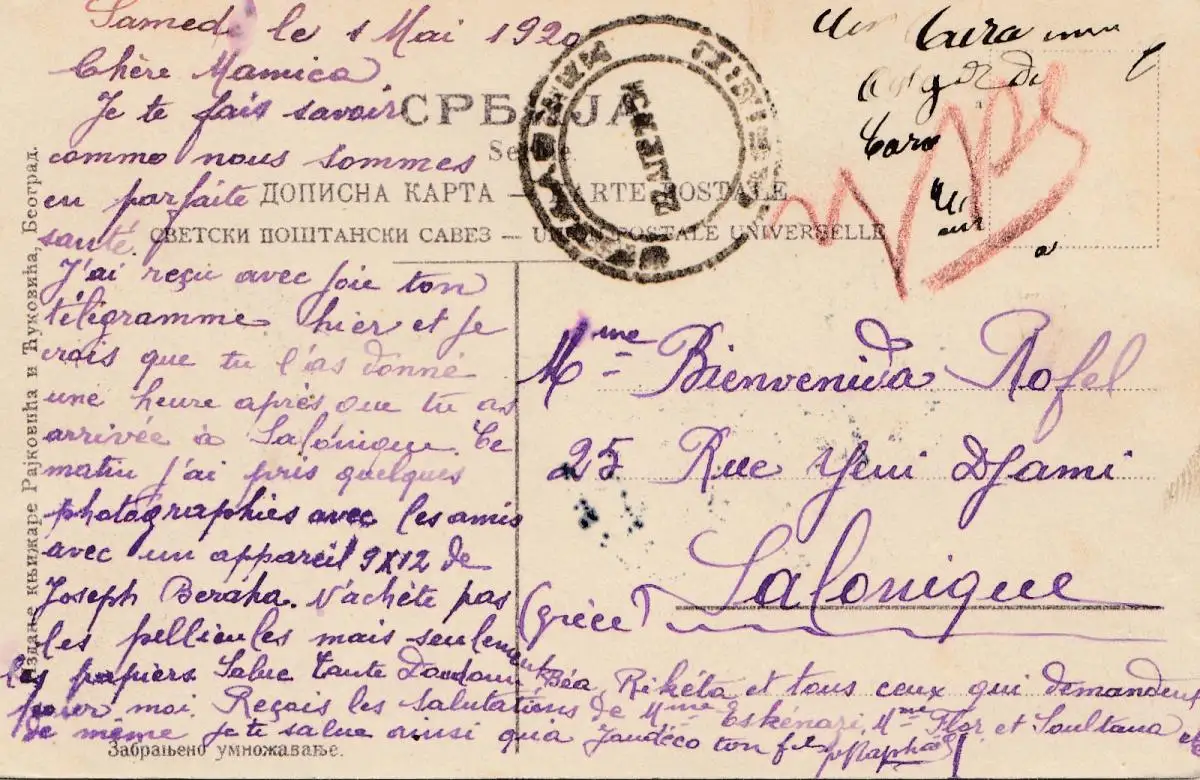 Samedi le 1 Mai 1920
Chère Mamica
Je te fais savoir
comme nous sommes
en parfaite
santé.
J'ai reçu avec joie ton
télégramme hier et je
crois que tu l'as donné
une heure après que tu as
arrivée à Salonique. Ce
matin j'ai pris quelques
photographies avec les amis
avec un appareil 9X12 de
Joseph Beraha. N'achète pas
les pellicules mais seulement
les papiers. Salue Tante Doudoun Béa, Rikéta et tous ceux qui demandent
pour moi. Reçois les salutations de Mme Eskénazi, Mme Flor et Soultana et
de même je te salue ainsi qu'a Jaudéco ton fils Raphaël
СРБИЈА
ДОПИСНА КАРТА — CARTE POSTALE
СВЕТСКИ ПОШТАНСКИ САВЕЗ — UNION POSTALE UNIVERSELLE
Mme Bienvenida Rofel
25 Rue Yeni Djami
Salonique
(grèce)
Издање књижаре Рајковића и Ћуковића, Београд.
Забрањено умножавање.